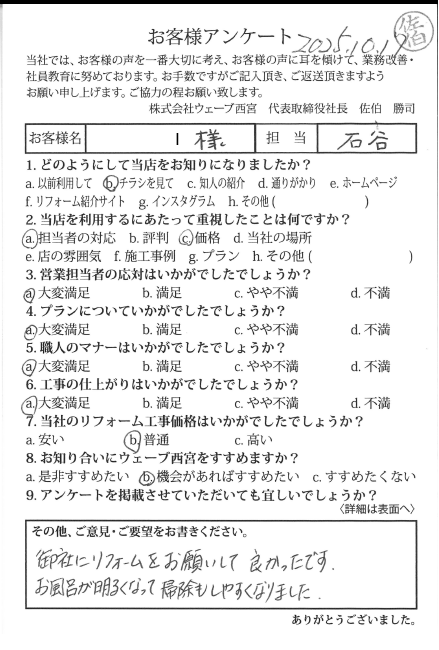 お客様アンケート 2025.10.17
佐伯
当社では、お客様の声を一番大切に考え、お客様の声に耳を傾けて、業務改善・
社員教育に努めております。お手数ですがご記入頂き、ご返送頂きますよう
お願い申し上げます。ご協力の程お願い致します。
株式会社ウェーブ西宮 代表取締役社長 佐伯 勝司
お客様名 I 様 担 当 石谷
1. どのようにして当店をお知りになりましたか？
a. 以前利用して b. チラシを見て c. 知人の紹介 d. 通りがかり e. ホームページ
f. リフォーム紹介サイト g. インスタグラム h. その他 ( )
2. 当店を利用するにあたって重視したことは何ですか？
a. 担当者の対応 b. 評判 c. 価格 d. 当社の場所
e. 店の雰囲気 f. 施工事例 g. プラン h. その他 ( )
3. 営業担当者の応対はいかがでしたでしょうか？
a. 大変満足 b. 満足 c. やや不満 d. 不満
4. プランについていかがでしたでしょうか？
a. 大変満足 b. 満足 c. やや不満 d. 不満
5. 職人のマナーはいかがでしたでしょうか？
a. 大変満足 b. 満足 c. やや不満 d. 不満
6. 工事の仕上がりはいかがでしたでしょうか？
a. 大変満足 b. 満足 c. やや不満 d. 不満
7. 当社のリフォーム工事価格はいかがでしたでしょうか？
a. 安い b. 普通 c. 高い
8. お知り合いにウェーブ西宮をすすめますか？
a. 是非すすめたい b. 機会があればすすめたい c. すすめたくない
9. アンケートを掲載させていただいても宜しいでしょうか？
〈詳細は表面へ〉
その他、ご意見・ご要望をお書きください。
御社にリフォームをお願いして 良かったです.
お風呂が明るくなって掃除もしやすくなりました.
ありがとうございました。